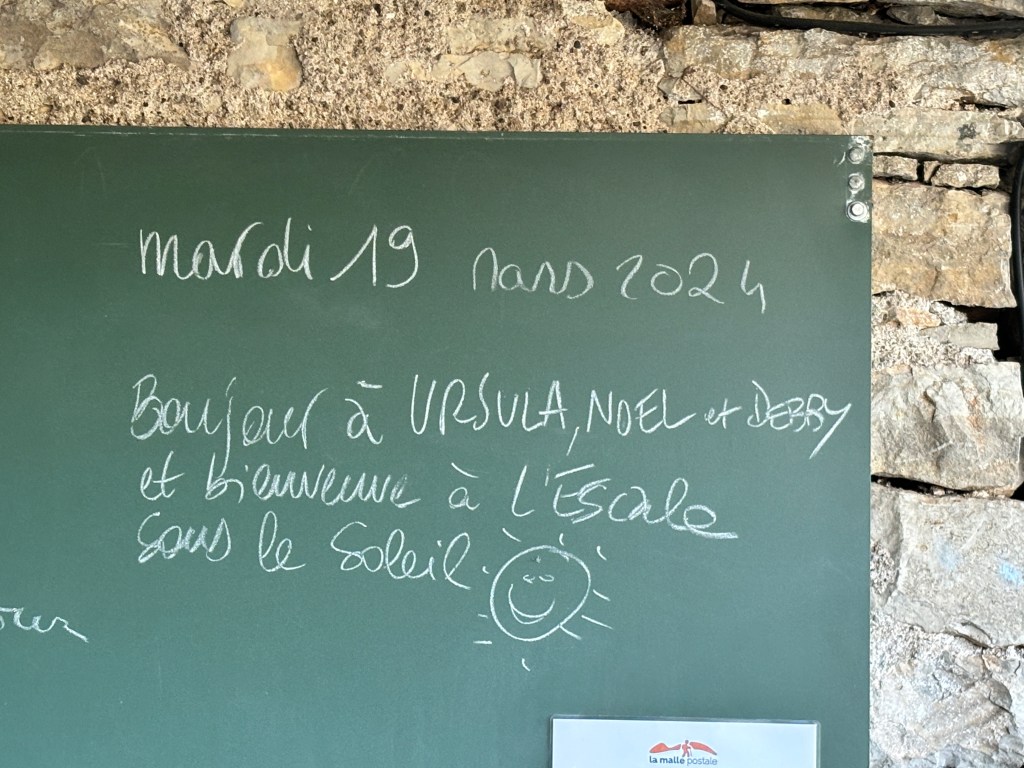 mardi 19 mars 2024
Bonjour à URSULA, NOEL et DEBBY
et bienvenue à L'Escale
sous le soleil.
la malle postale